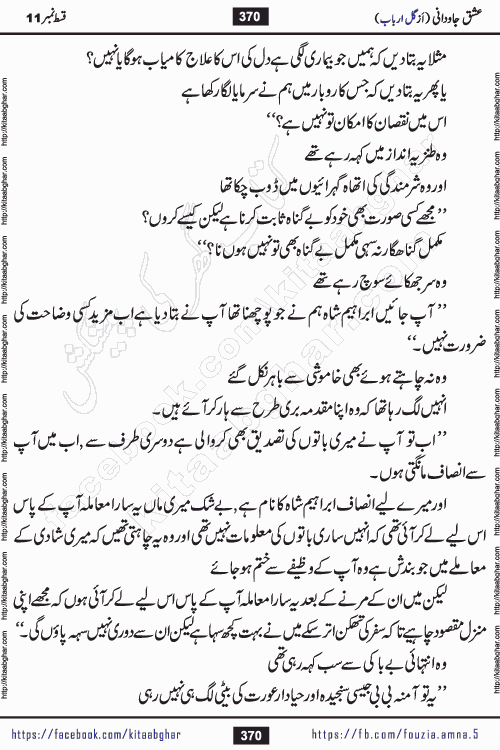 عشق جاودانی (از گل ارباب) 370 قسط نمبر 11
مثلا یہ بتا دیں کہ ہمیں جو بیماری لگی ہے دل کی اس کا علاج کامیاب ہوگا یا نہیں؟
یا پھر یہ بتا دیں کہ جس کاروبار میں ہم نے سرمایا لگا رکھا ہے
اس میں نقصان کا امکان تو نہیں ہے؟‘‘
وہ طنزیہ انداز میں کہہ رہے تھے
اور وہ شرمندگی کی اتھاہ گہرائیوں میں ڈوب چکا تھا
’’مجھے کسی صورت بھی خود کو بے گناہ ثابت کرنا ہے لیکن کیسے کروں؟
مکمل گناہگار نہ سہی مکمل بے گناہ بھی تو نہیں ہوں نا؟‘‘
وہ سر جھکائے سوچ رہے تھے
’’آپ جائیں ابراہیم شاہ ہم نے جو پوچھنا تھا آپ نے بتا دیا ہے اب مزید کسی وضاحت کی
ضرورت نہیں۔‘‘
وہ نہ چاہتے ہوئے بھی خاموشی سے باہر نکل گئے
انہیں لگ رہا تھا کہ وہ اپنا مقدمہ بری طرح سے ہار کر آئے ہیں۔
’’اب تو آپ نے میری باتوں کی تصدیق بھی کروا لی ہے دوسری طرف سے ,اب میں آپ
سے انصاف مانگتی ہوں۔
اور میرے لیے انصاف ابراہیم شاہ کا نام ہے ,بے شک میری ماں یہ سارا معاملہ آپ کے پاس
اس لیے لے کر آئی تھی کہ انہیں ساری باتوں کی معلومات نہیں تھی اور وہ یہ چاہتی تھیں کہ میری شادی کے
معاملے میں جو بندش ہے وہ آپ کے وظیفے سے ختم ہو جائے
لیکن میں ان کے مرنے کے بعد یہ سارا معاملہ آپ کے پاس اس لیے لے کر آئی ہوں کہ مجھے اپنی
منزل مقصود چاہیے تاکہ سفر کی تھکن اتر سکے میں نے بہت کچھ سہا ہے لیکن ان سے دوری نہیں سہہ پاؤں گی۔‘‘
وہ انتہائی بے باکی سے سب کہہ رہی تھی
’’یہ تو آمنہ بی بی جیسی سنجیدہ اور حیادار عورت کی بیٹی لگ ہی نہیں رہی
https://facebook.com/kitaabghar 370 https://fb.com/fouzia.amna.5
http://kitaabghar.com http://kitaabghar.com http://kitaabghar.com http://kitaabghar.com http://kitaabghar.com http://kitaabghar.com http://kitaabghar.com http://kitaabghar.com
کتاب گھر کی پیشکش
facebook.com/kitaabghar
kitaabghar.com